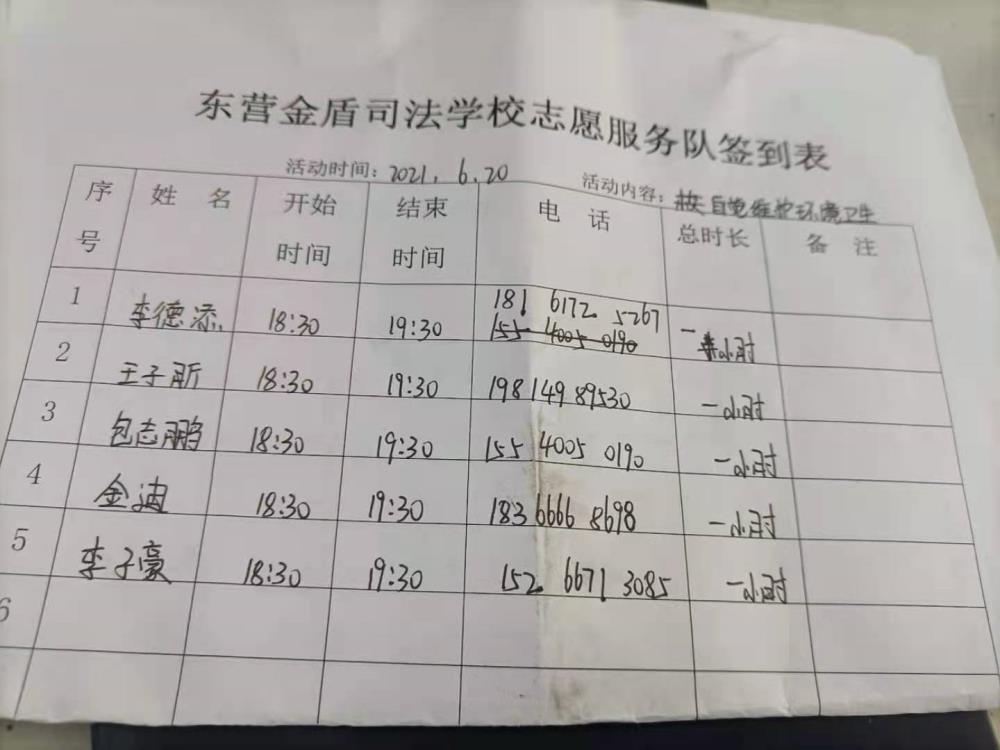 东营金盾司法学校志愿服务队签到表
活动时间：2021.6.20 活动内容：自觉维护环境卫生
序号 姓名 开始时间 结束时间 电话 总时长 备注
1 李德添 18:30 19:30 181 6172 5267 一小时
155 4005 0190
2 王子 18:30 19:30 198 149 89530 一小时
3 包志鹏 18:30 19:30 155 4005 0190 一小时
4 金迪 18:30 19:30 183 6666 8698 一小时
5 李子豪 18:30 19:30 152 6671 3085 一小时
6